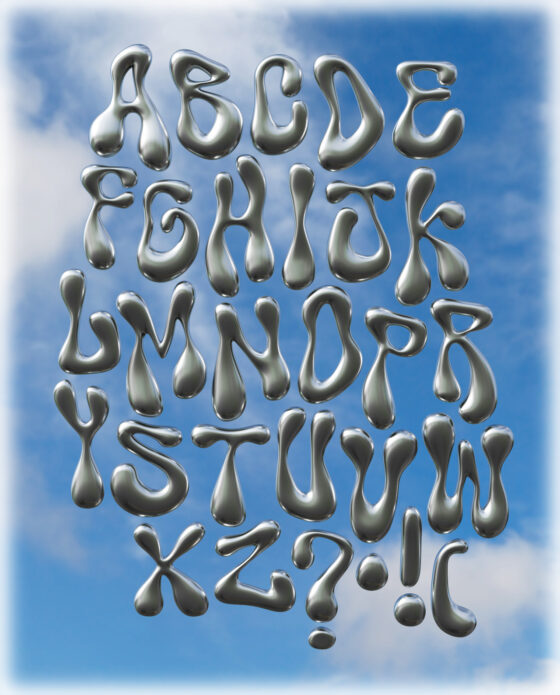 ABCDE
FGHIJK
LMNOPR
YSTUVW
XZ?·!(